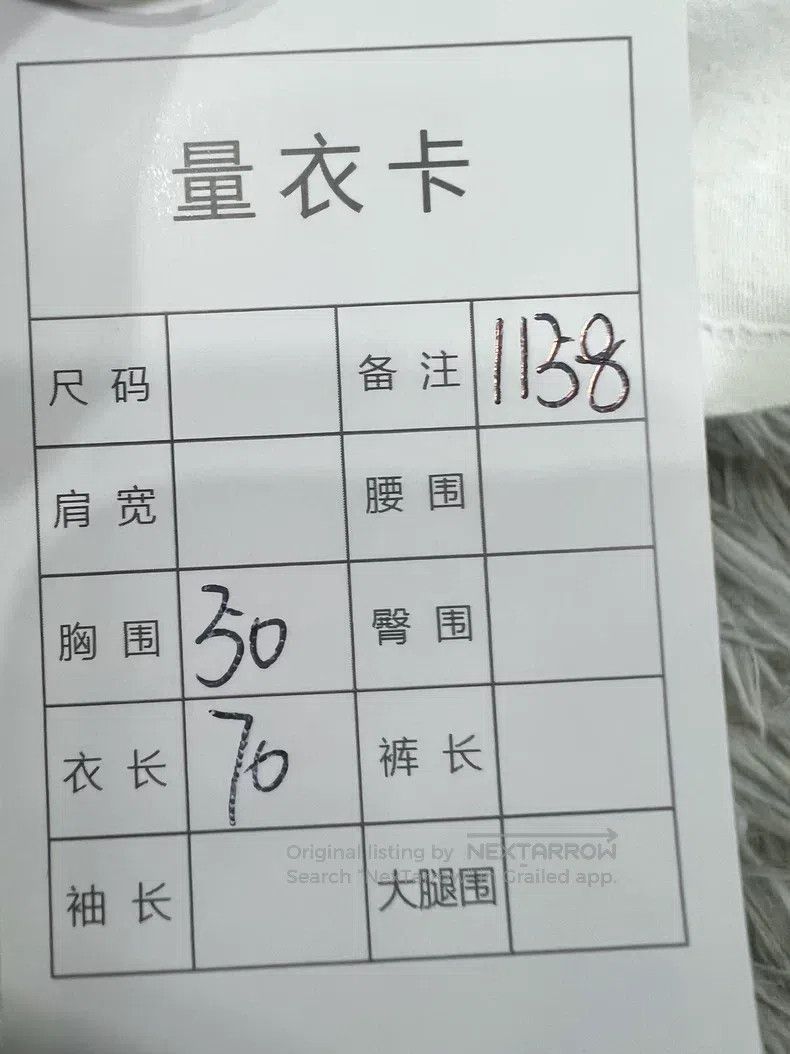 量衣卡
尺码 备注 1158
肩宽 腰围
胸围 50 臀围
衣长 70 裤长
袖长 大腿围
Original listing by NEXTARROW
Search "NexTarrow" on Grailed app.